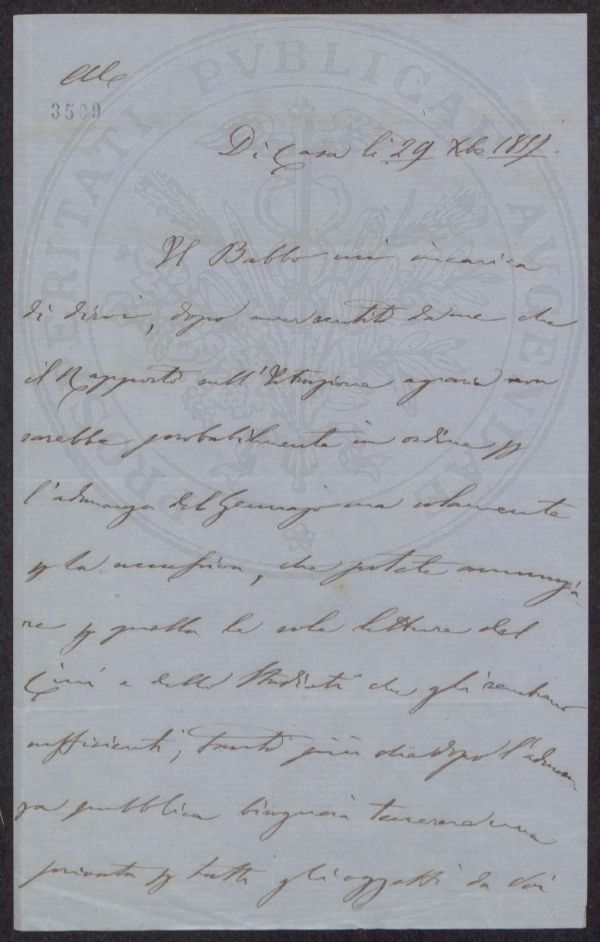 3509
PROSPERITATI PUBLICAE AUGENDAE
Di Casa li 29 Xbe 1857.
Il Babbo mi incarica
di dirvi, dopo aver sentito da me che
il Rapporto sull'Istruzione agraria non
sarebbe probabilmente in ordine p
l'adunanza del Gennajo ma solamente
p la successiva, che potete annunzia
re p quella le sole letture del
e dello che gli sembrano
sufficienti; tanto più che dopo l'adunan
za pubblica bisognerà tenerne una
privata p tutti gli oggetti da Voi